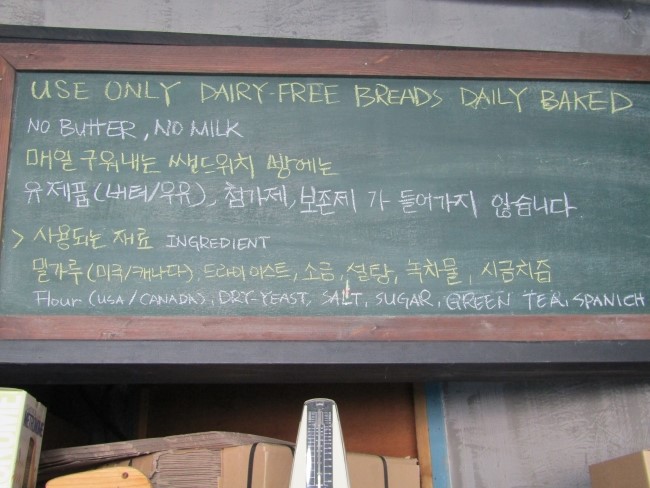 USE ONLY DAIRY-FREE BREADS DAILY BAKED
NO BUTTER, NO MILK
매일 구워내는 쌘드위치 빵에는
유제품(버터/우유), 첨가제, 보존제 가 들어가지 않습니다.
> 사용되는 재료 INGREDIENT
밀가루(미국/캐나다), 드라이이스트, 소금, 설탕, 녹차물, 시금치즙
Flour (USA/CANADA), DRY-YEAST, SALT, SUGAR, GREEN TEA, SPANICH